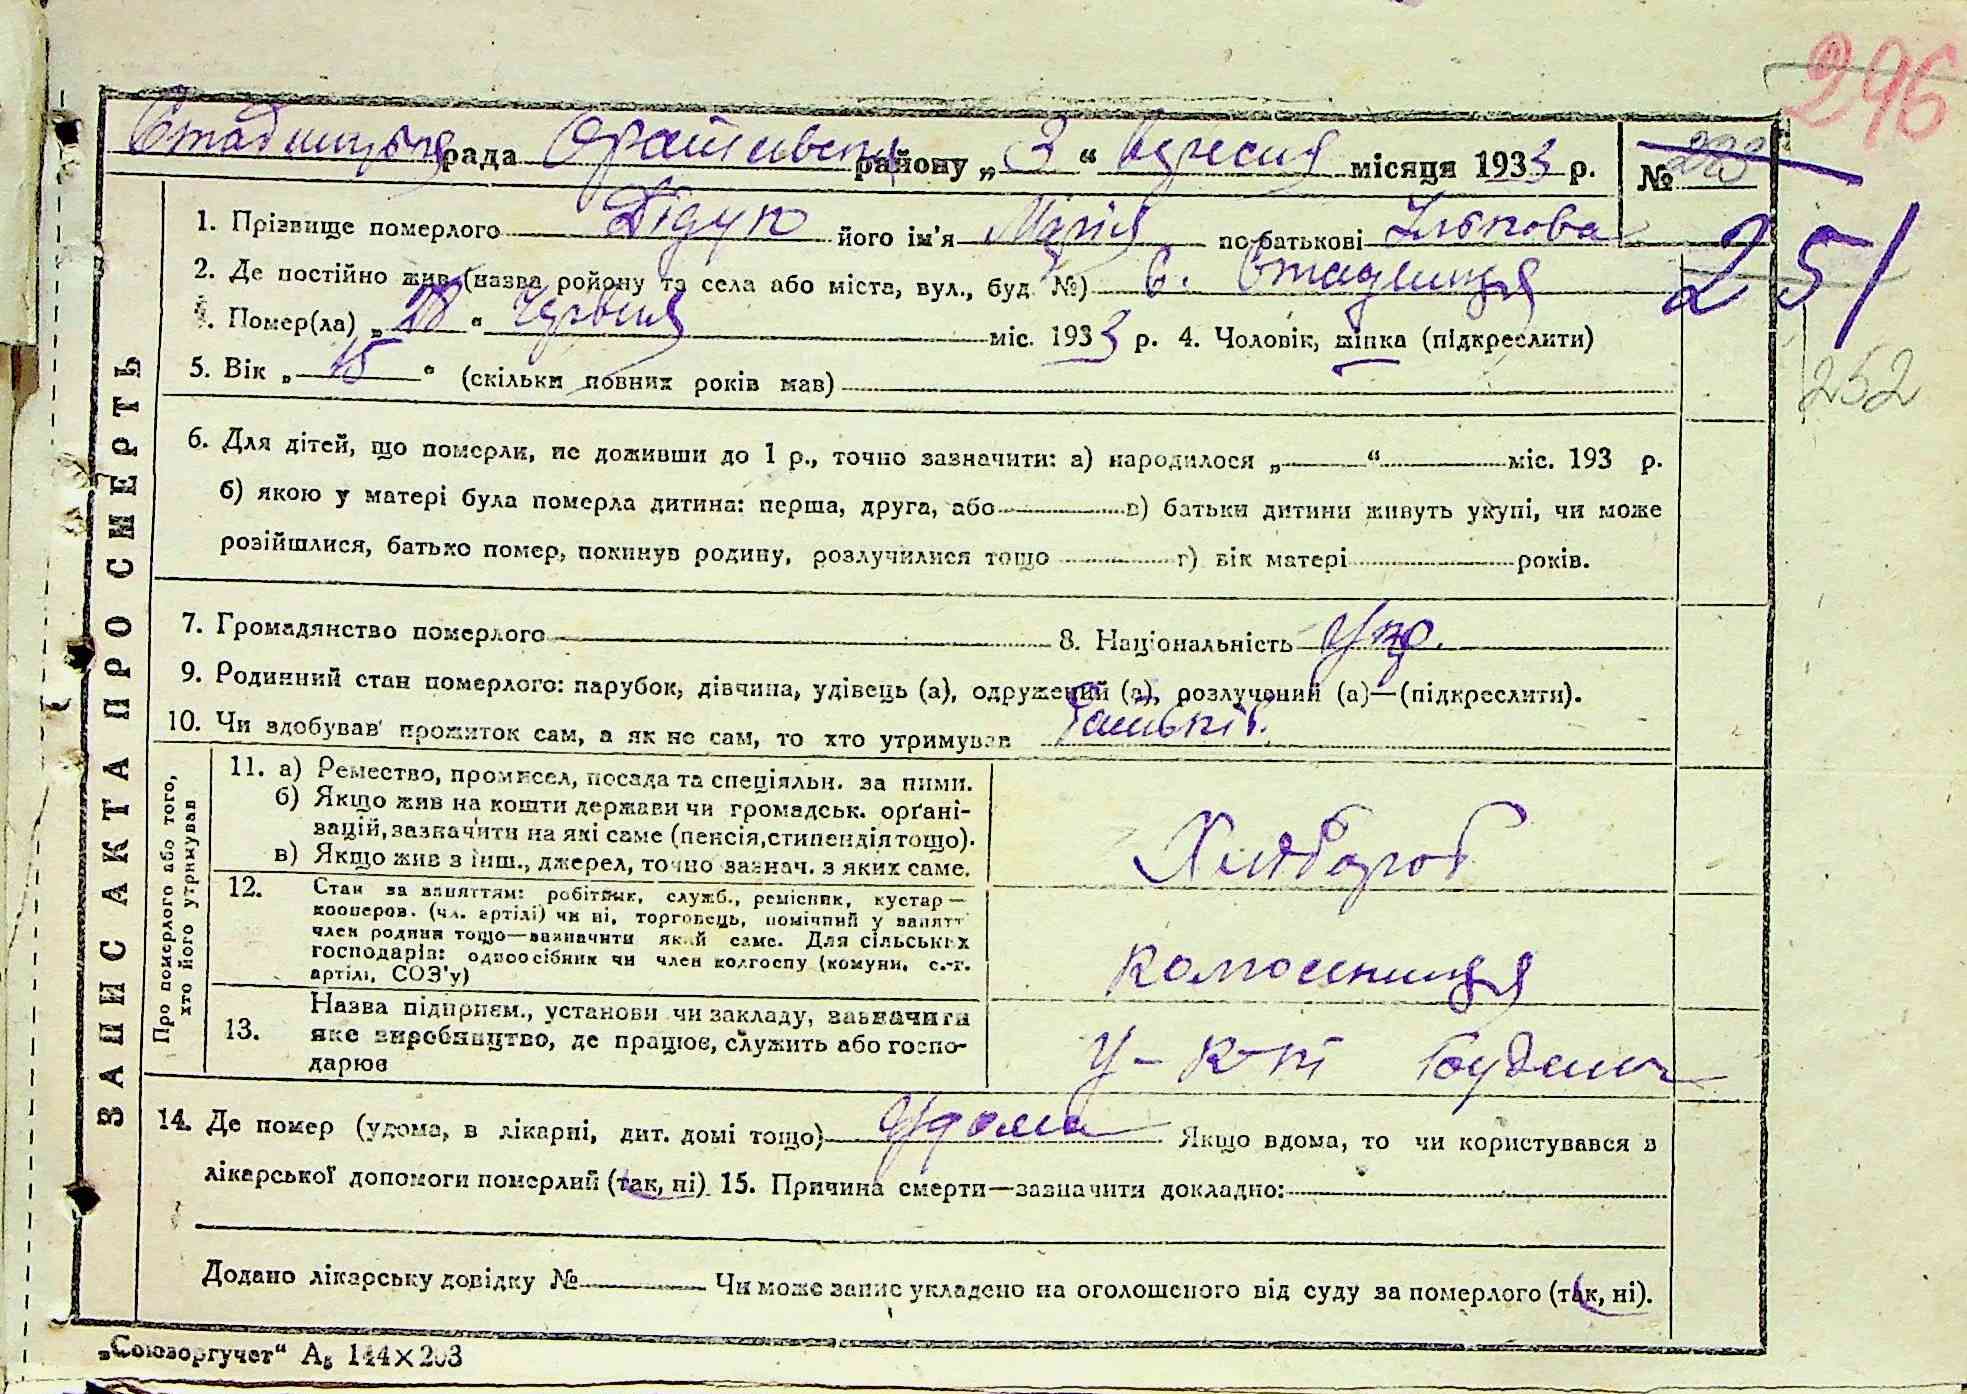 296
Стадницька рада Оратівськ району „3“ вересня місяця 1933 р. № 283
251
252
ЗАПИС АКТА ПРО СМЕРТЬ
1. Прізвище померлого Дідук його ім'я Марія по батькові Ількова
2. Де постійно жив (назва ройону та села або міста, вул., буд. №) С. Стадниця
3. Помер(ла) „28“ Червня міс. 1933 р. 4. Чоловік, жінка (підкреслити)
5. Вік „15“ (скільки повних років мав)
6. Для дітей, що померли, не доживши до 1 р., точно зазначити: а) народилося „ “ міс. 193 р.
б) якою у матері була померла дитина: перша, друга, або в) батьки дитини живуть укупі, чи може
розійшлися, батько помер, покинув родину, розлучилися тощо г) вік матері років.
7. Громадянство померлого 8. Національність Укр.
9. Родинний стан померлого: парубок, дівчина, удівець (а), одружений (а), розлучений (а)—(підкреслити).
10. Чи здобував прожиток сам, а як не сам, то хто утримував Батьків.
Про померлого або того, хто його утримував
11. а) Ремество, промисел, посада та спеціяльн. за ними.
б) Якщо жив на кошти держави чи громадськ. орґані-
зацій, зазначити на які саме (пенсія, стипендія тощо).
в) Якщо жив з інш., джерел, точно зазнач. з яких саме.
Хлібороб
12. Стан за заняттям: робітник, служб., ремісник, кустар—
кооперов. (чл. артілі) чи ні, торговець, помічний у занятт
член родини тощо—зазначити який саме. Для сільських
господарів: одноосібник чи член колгоспу (комуни, с.-г.
артілі, СОЗ'у)
колгоспниця
13. Назва підприєм., установи чи закладу, зазначити
яке виробництво, де працює, служить або госпо-
дарює
У-к-пі Будена
14. Де помер (удома, в лікарні, дит. домі тощо) Удома Якщо вдома, то чи користувався з
лікарської допомоги померлий (так, ні). 15. Причина смерти—зазначити докладно:
Додано лікарську довідку № Чи може запис укладено на оголошеного від суду за померлого (так, ні).
„Союзоргучет“ А₅ 144×203